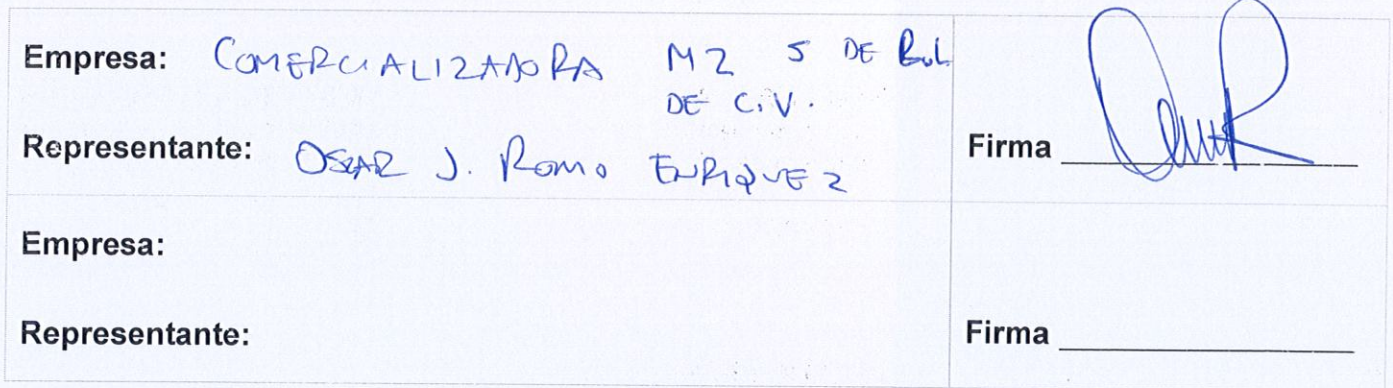 Empresa: COMERCIALIZADORA M2 S DE R.L
DE C.V.
Representante: OSCAR J. ROMO ENRIQUEZ
Firma
Empresa:
Representante:
Firma